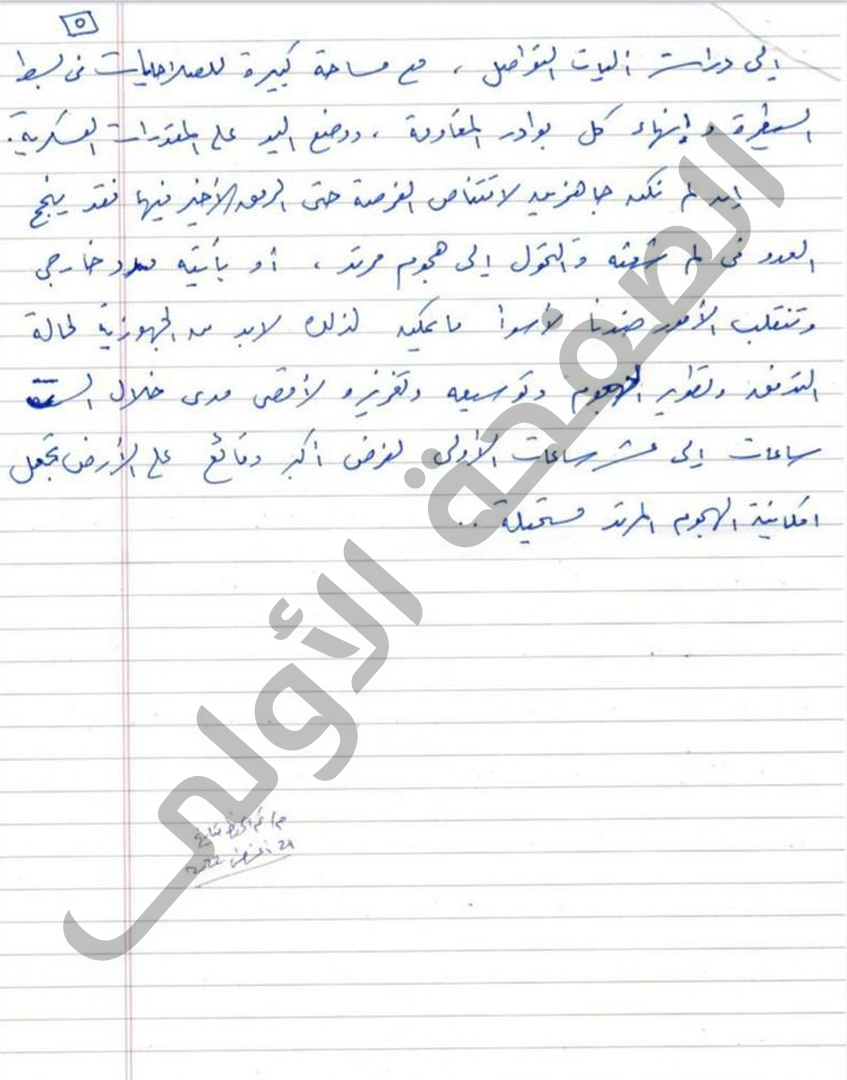 ٥
إلى دراسة آليات التواصل ، مع مساحة كبيرة للصلاحيات في بسط
السيطرة و إنهاء كل بوادر المقاومة ، ووضع اليد على المقدرات العسكرية.
إن لم نكن جاهزين لاقتناص الفرصة حتى الرمق الأخير فيها فقد ينجح
العدو في لم شعثه والتحول إلى هجوم مرتد ، أو يأتيه مدد خارجي
وتنقلب الأمور ضدنا لأسوأ ما يمكن لذلك لابد من الجهوزية لحالة
التدفق وتطوير الهجوم وتوسيعه وتعزيزه لأقصى مدى خلال الست
ساعات إلى عشر ساعات الأولى لفرض أكبر وقائع على الأرض تجعل
امكانية الهجوم المرتد مستحيلة ..
24 أغسطس 2022
الصفحة الأولى